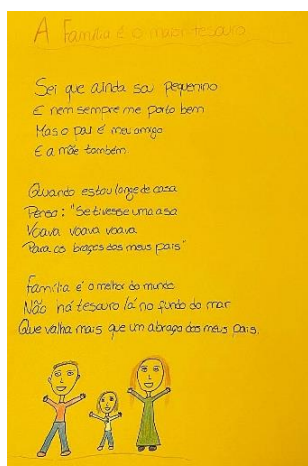 A Família é o maior tesouro
Sei que ainda sou pequenino
E nem sempre me porto bem
Mas o pai é meu amigo
E a mãe também.
Quando estou longe de casa
Penso: "Se tivesse uma asa
Voava voava voava
Para os braços dos meus pais"
Família é o melhor do mundo
Não há tesouro lá no fundo do mar
Que valha mais que um abraço dos meus pais.